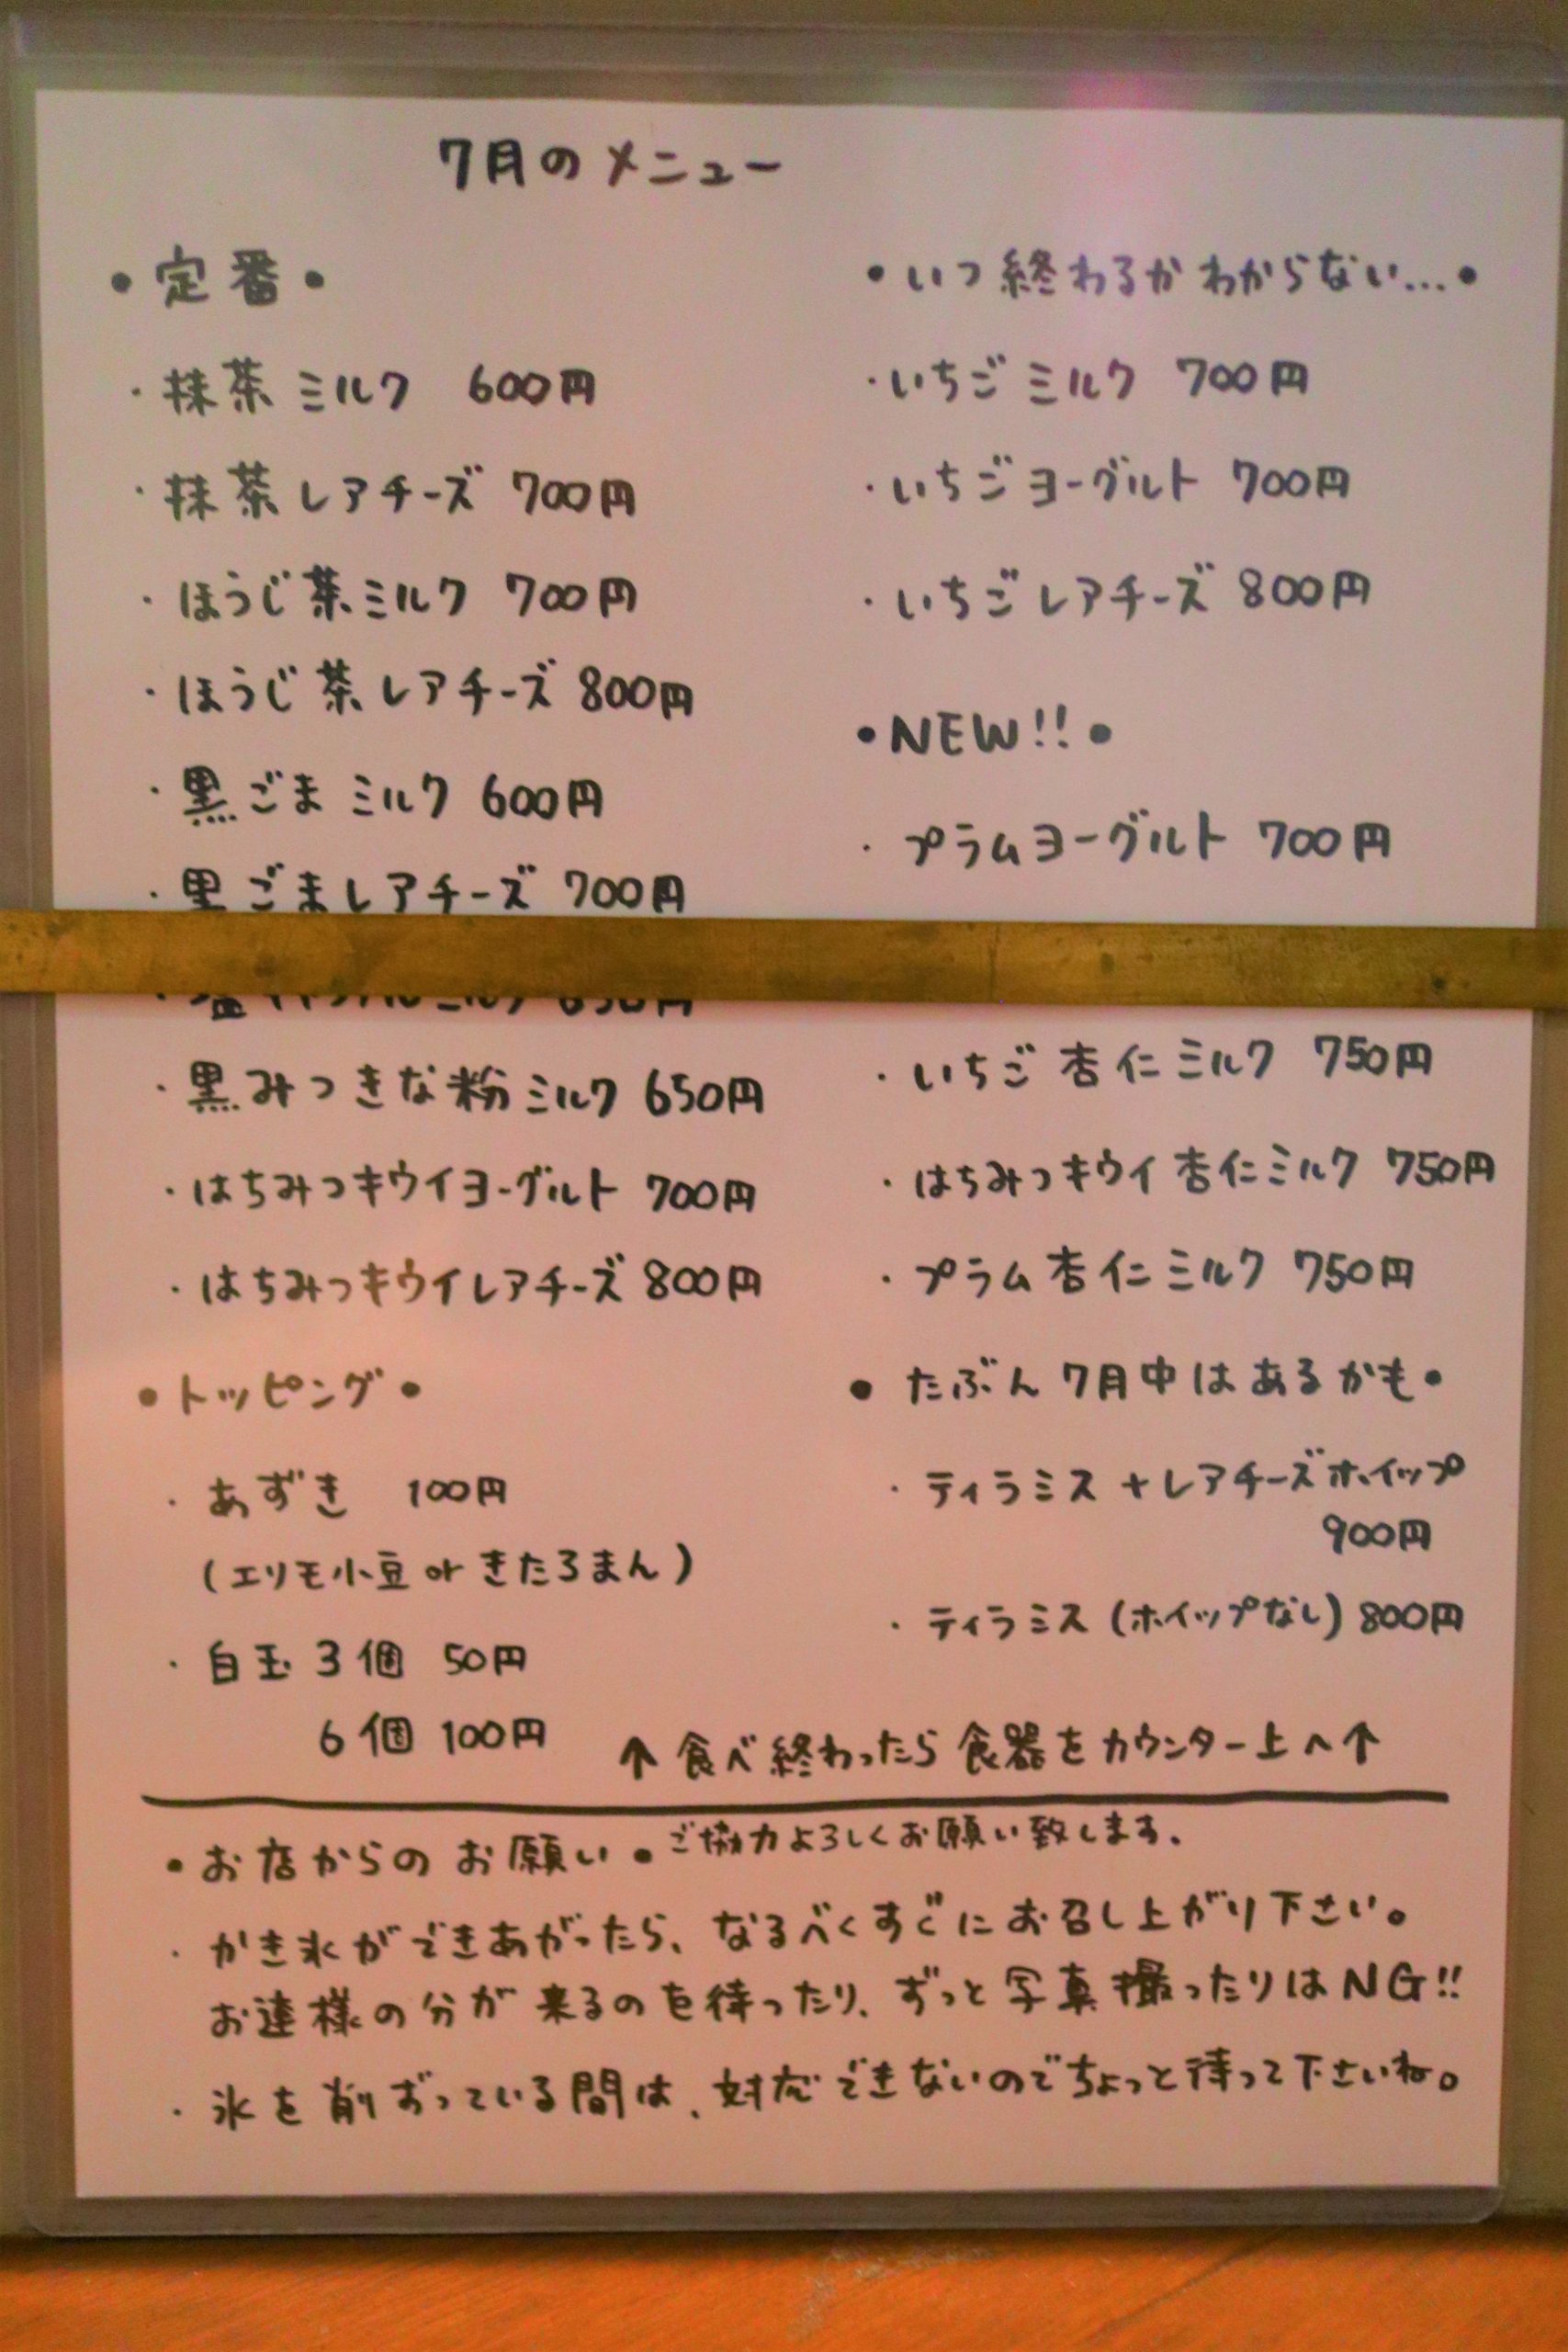 7月のメニュー
•定番•
・抹茶ミルク 600円
・抹茶レアチーズ 700円
・ほうじ茶ミルク 700円
・ほうじ茶レアチーズ 800円
・黒ごまミルク 600円
・黒ごまレアチーズ 700円
・黒みつきな粉ミルク 650円
・はちみつキウイヨーグルト 700円
・はちみつキウイレアチーズ 800円
•トッピング•
・あずき 100円
(エリモ小豆 or きたろまん)
・白玉 3個 50円
6個 100円
•いつ終わるかわからない...•
・いちごミルク 700円
・いちごヨーグルト 700円
・いちごレアチーズ 800円
•NEW!!•
・プラムヨーグルト 700円
・いちご杏仁ミルク 750円
・はちみつキウイ杏仁ミルク 750円
・プラム杏仁ミルク 750円
•たぶん7月中はあるかも•
・ティラミス+レアチーズホイップ
900円
・ティラミス(ホイップなし) 800円
↑食べ終わったら食器をカウンター上へ↑
•お店からのお願い•ご協力よろしくお願い致します。
・かき氷ができあがったら、なるべくすぐにお召し上がり下さい。
お達様の分が来るのを待ったり、ずっと写真撮ったりはNG!!
・氷を削ずっている間は、対応できないのでちょっと待って下さいね。